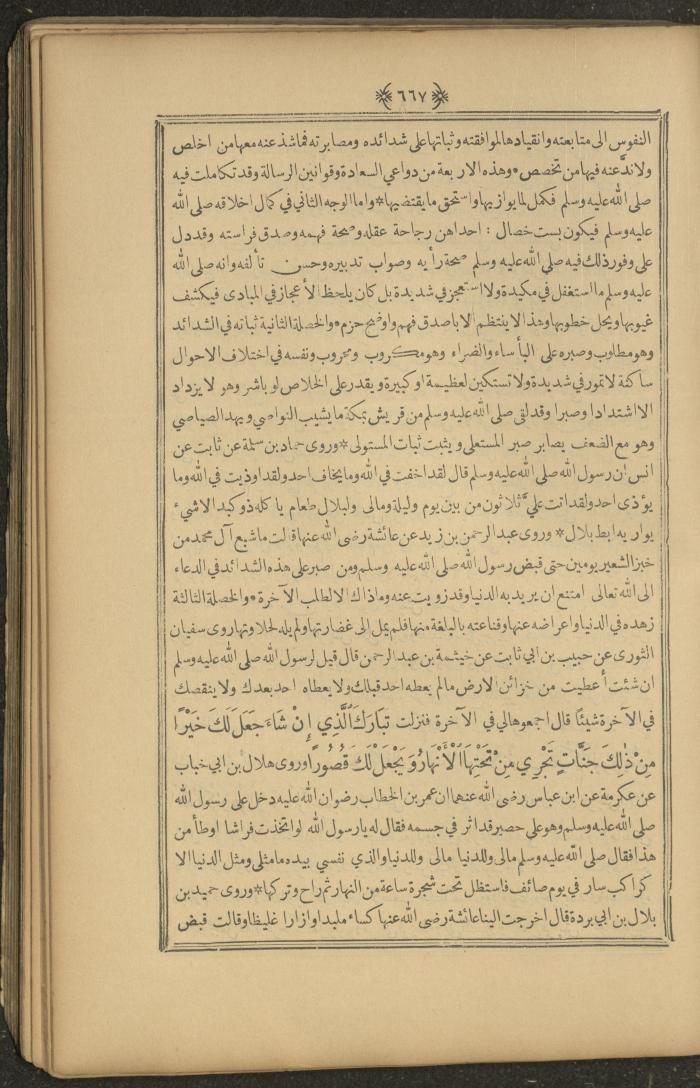 ٦٦٧
النفوس الى متابعته وانقيادها لموافقته وثباتها على شدائده ومصابرته فما شذ عنه معها من اخلص
ولا ندّ عنه فيها من تخصص * وهذه الاربعة من دواعي السعادة وقوانين الرسالة وقد تكاملت فيه
صلى الله عليه وسلم فكمل لما يوازيها واستحق ما يقتضيها * واما الوجه الثاني في كمال اخلاقه صلى الله
عليه وسلم فيكون بست خصال : احداهن رجاحة عقله وصحة فهمه وصدق فراسته وقد دل
على وفور ذلك فيه صلى الله عليه وسلم صحة رأيه وصواب تدبيره وحسن تألفه وانه صلى الله
عليه وسلم ما استغفل في مكيدة ولا استعجز في شديدة بل كان يلحظ الأعجاز في المبادى فيكشف
غيوبها ويحل خطوبها وهذا لا ينتظم الا باصدق فهم واوضح حزم * والخصلة الثانية ثباته في الشدائد
وهو مطلوب وصبره على البأساء والضراء وهو مكروب ومحروب ونفسه في اختلاف الاحوال
ساكنة لا تمور في شديدة ولا تستكين لعظيمة او كبيرة ويقدر على الخلاص لو باشر وهو لا يزداد
الا اشتدادا وصبرا وقد لقى صلى الله عليه وسلم من قريش بمكة ما يشيب النواصي ويهد الصياصي
وهو مع الضعف يصابر صبر المستعلى ويثبت ثبات المستولى * وروى حماد بن سلمة عن ثابت عن
انس ان رسول الله صلى الله عليه وسلم قال لقد اخفت في الله وما يخاف احد ولقد اوذيت في الله وما
يؤذى احد ولقد اتت عليّ ثلاثون من بين يوم وليلة ومالى ولبلال طعام ياكله ذو كبد الا شيء
يواريه ابط بلال * وروى عبد الرحمن بن زيد عن عائشة رضى الله عنها قالت ما شبع آل محمد من
خبز الشعير يومين حتى قبض رسول الله صلى الله عليه وسلم ومن صبر على هذه الشدائد في الدعاء
الى الله تعالى امتنع ان يريد به الدنيا وقد زويت عنه وما ذاك الا لطلب الآخرة * والخصلة الثالثة
زهده في الدنيا واعراضه عنها وقناعته بالبلغة منها فلم يمل الى غضارتها ولم يله لحلاوتها روى سفيان
الثورى عن حبيب بن ابي ثابت عن خيثمة بن عبد الرحمن قال قيل لرسول الله صلى الله عليه وسلم
ان شئت أعطيت من خزائن الارض ما لم يعطه احد قبلك ولا يعطاه احد بعدك ولا ينقصك
في الآخرة شيئًا قال اجمعوها لي في الآخرة فنزلت تَبَارَكَ ٱلَّذِي إِنْ شَاءَ جَعَلَ لَكَ خَيْرًا
مِنْ ذٰلِكَ جَنَّاتٍ تَجْرِي مِنْ تَحْتِهَا ٱلْأَنْهَارُ وَيَجْعَلْ لَكَ قُصُورًا وروى هلال بن ابي خباب
عن عكرمة عن ابن عباس رضى الله عنهما ان عمر بن الخطاب رضوان الله عليه دخل على رسول الله
صلى الله عليه وسلم وهو على حصير قد اثر في جسمه فقال له يا رسول الله لو اتخذت فراشا اوطأ من
هذا فقال صلى الله عليه وسلم مالى وللدنيا مالى وللدنيا والذي نفسي بيده ما مثلى ومثل الدنيا الا
كراكب سار في يوم صائف فاستظل تحت شجرة ساعة من النهار ثم راح وتركها * وروى حميد بن
بلال بن ابي بردة قال اخرجت الينا عائشة رضى الله عنها كساء ملبدا وازارا غليظا وقالت قبض